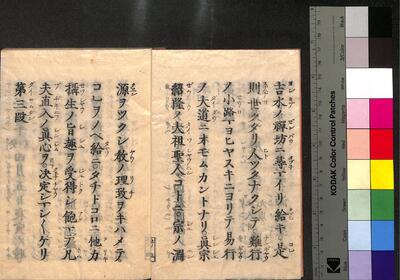 吉水ノ禪坊ニ尋マイリ給キ是
則世クタリ人ツタナクシテ難行
ノ小路マヨヒヤスキニヨリテ易行
ノ大道ニオモムカントナリ眞宗
紹隆ノ大祖聖人コトニ宗ノ淵
源ヲツクシ敎ノ理致ヲキハメテ
コレヲノヘ給ニタチトコロニ他力
攝生ノ旨趣ヲ受得シ飽マテ凡
夫直入ノ眞心ヲ決定シマシ〱ケリ
第三段
KODAK Color Control Patches
Black
3/Color
White
Magenta
Red
Yellow
Green
Cyan
Blue